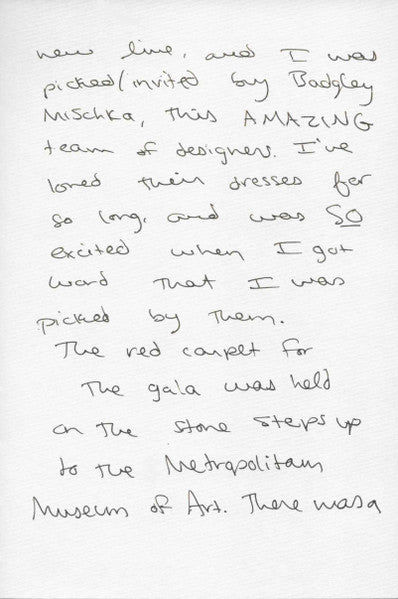 new line, and I was
picked/invited by Badgley
Mischka, this AMAZING
team of designers. I've
loved their dresses for
so long, and was SO
excited when I got
word that I was
picked by them.
The red carpet for
the gala was held
on the stone steps up
to the Metropolitan
Museum of Art. There was a